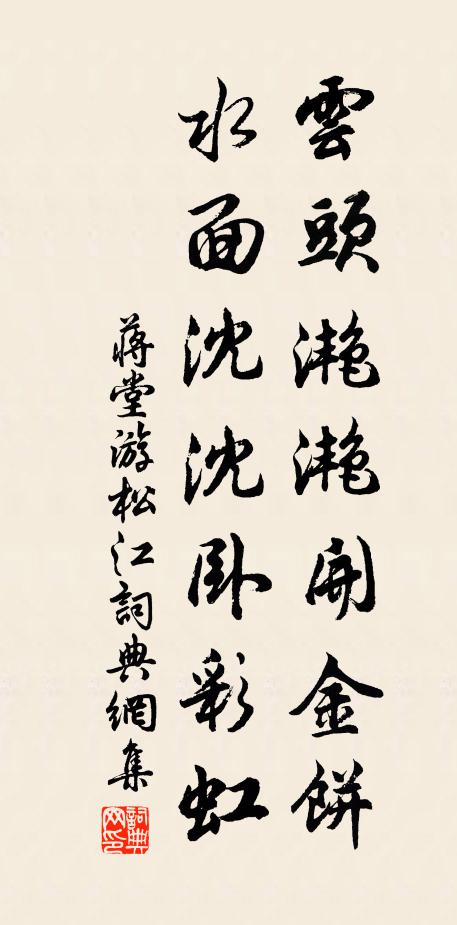 雲頭灧灧開金餅
水面沈沈卧彩虹
蔣堂游松江詞典網集
詞典网印